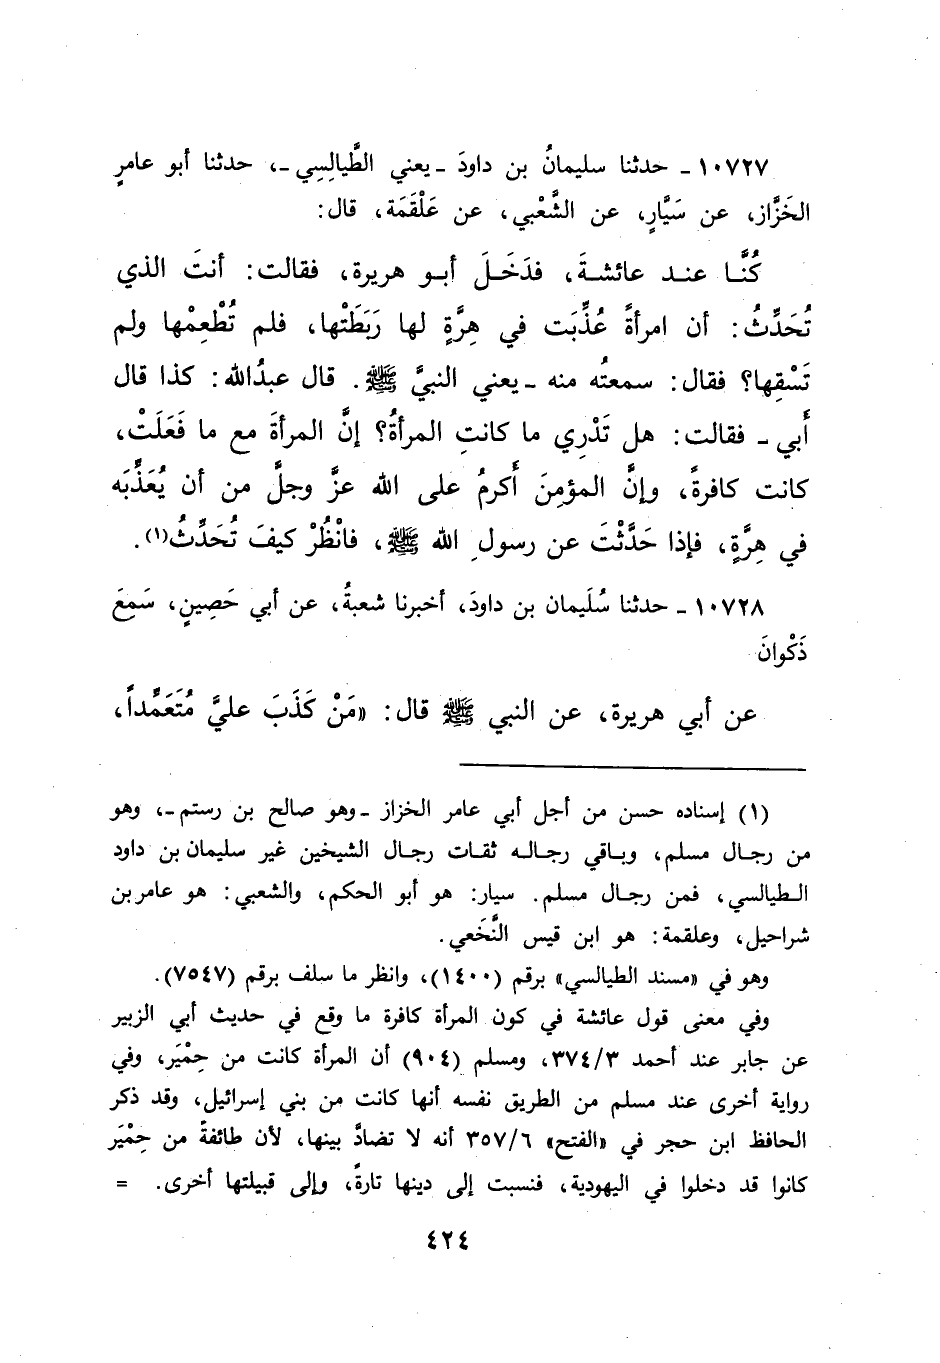 ١٠٧٢٧ ـ حدثنا سليمانُ بن داودَ ـ يعني الطَّيالِسِي ـ، حدثنا أبو عامرٍ
الخَزَّاز، عن سَيَّارٍ، عن الشَّعْبي، عن عَلْقَمَة، قال:
كُنَّا عند عائشةَ، فدَخَلَ أبو هريرة، فقالت: أنتَ الذي
تُحَدِّثُ: أن امرأةً عُذِّبَت في هِرَّةٍ لها رَبَطَتْها، فلم تُطْعِمْها ولم
تَسْقِها؟ فقال: سمعتُه منه ـ يعني النبيَّ ﷺ. قال عبدُالله: كذا قال
أَبي ـ فقالت: هل تَدْرِي ما كانتِ المرأةُ؟ إنَّ المرأةَ مع ما فَعَلَتْ،
كانت كافرةً، وإنَّ المؤمِنَ أَكرمُ على الله عزَّ وجلَّ من أن يُعَذِّبَه
في هِرَّةٍ، فإذا حَدَّثْتَ عن رسولِ الله ﷺ، فانْظُرْ كيفَ تُحَدِّثُ(١).
١٠٧٢٨ ـ حدثنا سُلَيمان بن داودَ، أخبرنا شعبةُ، عن أبي حَصِينٍ، سَمِعَ
ذَكْوانَ
عن أبي هريرة، عن النبي ﷺ قال: «مَنْ كَذَبَ عليَّ مُتَعَمِّداً،
(١) إسناده حسن من أجل أبي عامر الخزاز ـ وهو صالح بن رستم ـ، وهو
من رجال مسلم، وباقي رجاله ثقات رجال الشيخين غير سليمان بن داود
الطيالسي، فمن رجال مسلم. سيار: هو أبو الحكم، والشعبي: هو عامر بن
شراحيل، وعلقمة: هو ابن قيس النَّخَعي.
وهو في «مسند الطيالسي» برقم (١٤٠٠)، وانظر ما سلف برقم (٧٥٤٧).
وفي معنى قول عائشة في كون المرأة كافرة ما وقع في حديث أبي الزبير
عن جابر عند أحمد ٣/٣٧٤، ومسلم (٩٠٤) أن المرأة كانت من حِمْيَر، وفي
رواية أخرى عند مسلم من الطريق نفسه أنها كانت من بني إسرائيل، وقد ذكر
الحافظ ابن حجر في «الفتح» ٦/٣٥٧ أنه لا تضادَّ بينها، لأن طائفةً من حِمْيَر
كانوا قد دخلوا في اليهودية، فنسبت إلى دينها تارةً، وإلى قبيلتها أخرى. =
٤٢٤